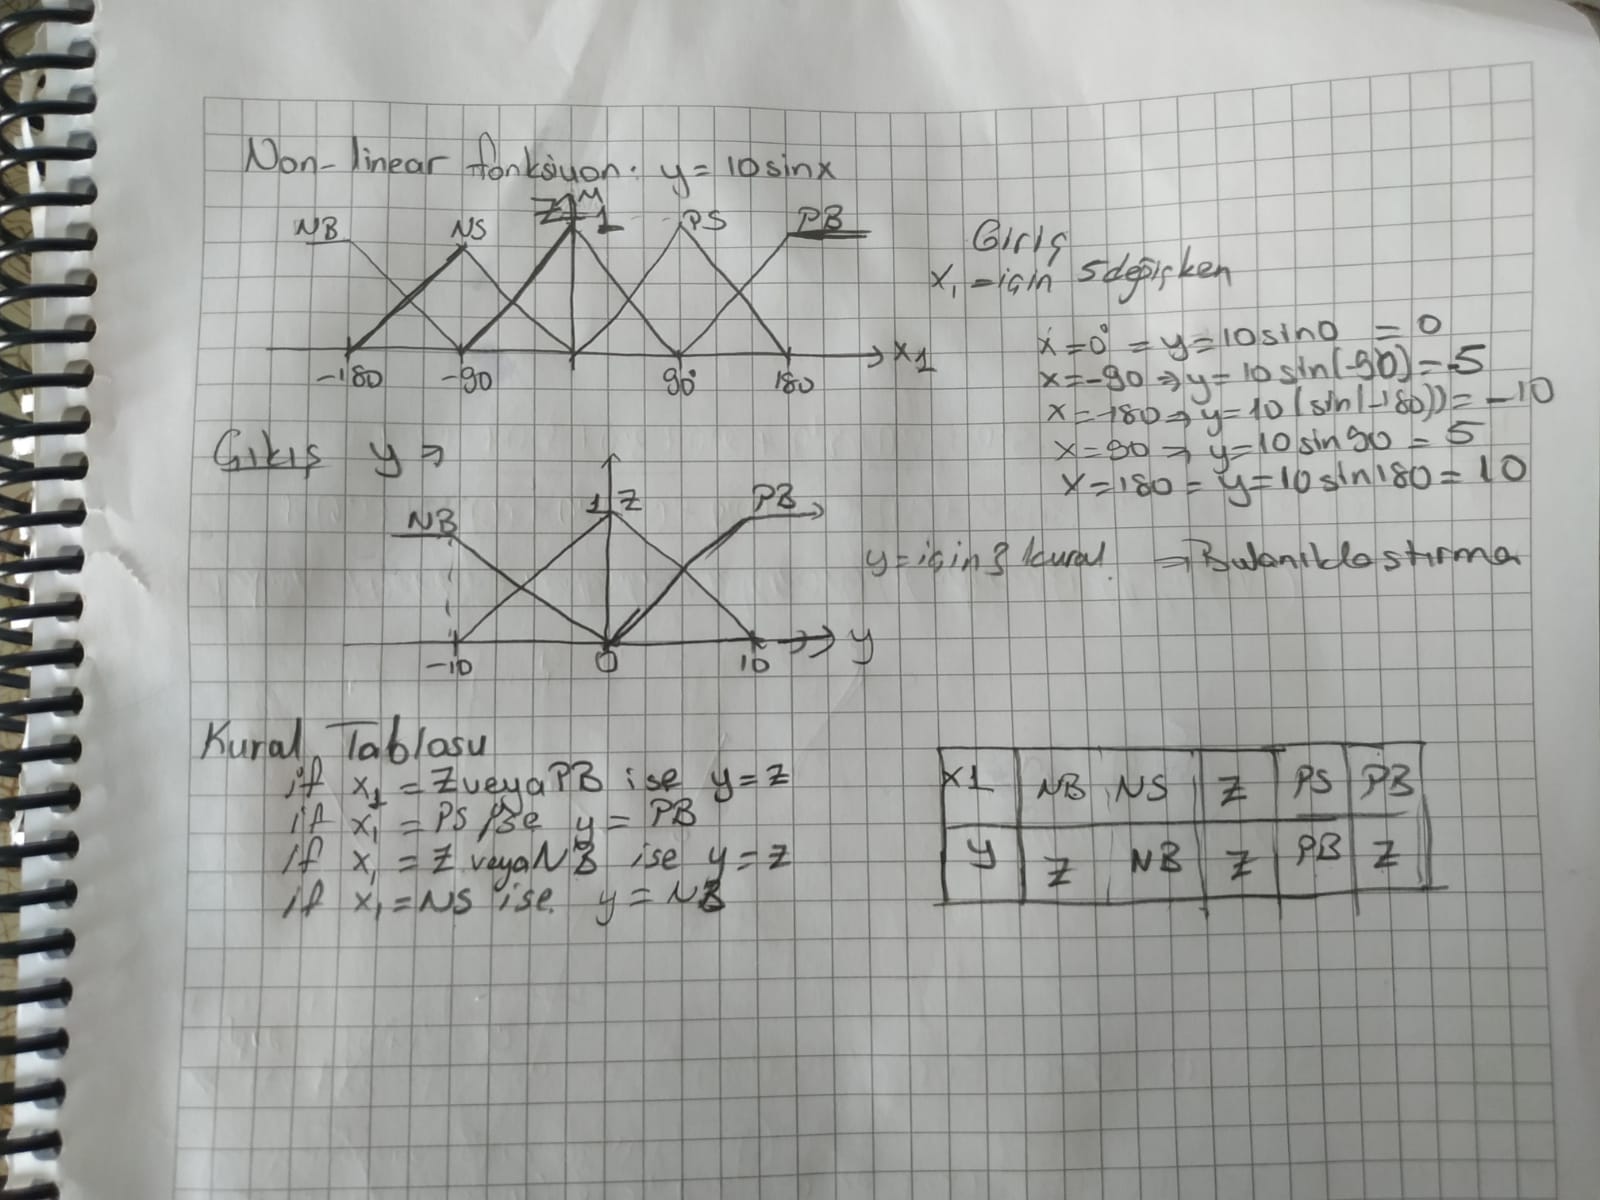 Non-linear fonksiyon: y = 10sinx
NB NS Z M 1 PS PB
-180 -90 90° 180 x1
Giriş
x1 = için 5 değişken
x = 0° = y = 10 sin0 = 0
x = -90 ⇒ y = 10 sin(-90) = -5
x = -180 ⇒ y = 10 (sin(-180)) = -10
x = 90 ⇒ y = 10 sin 90 = 5
x = 180 = y = 10 sin 180 = 10
Çıkış y ⇒
NB 1 Z PB
-10 0 10 y
y = için 3 kural ⇒ Bulanıklastırma
Kural Tablosu
if x1 = Z veya PB ise y = Z
if x1 = PS ise y = PB
if x1 = Z veya NB ise y = Z
if x1 = NS ise y = NB
x1 NB NS Z PS PB
y Z NB Z PB Z